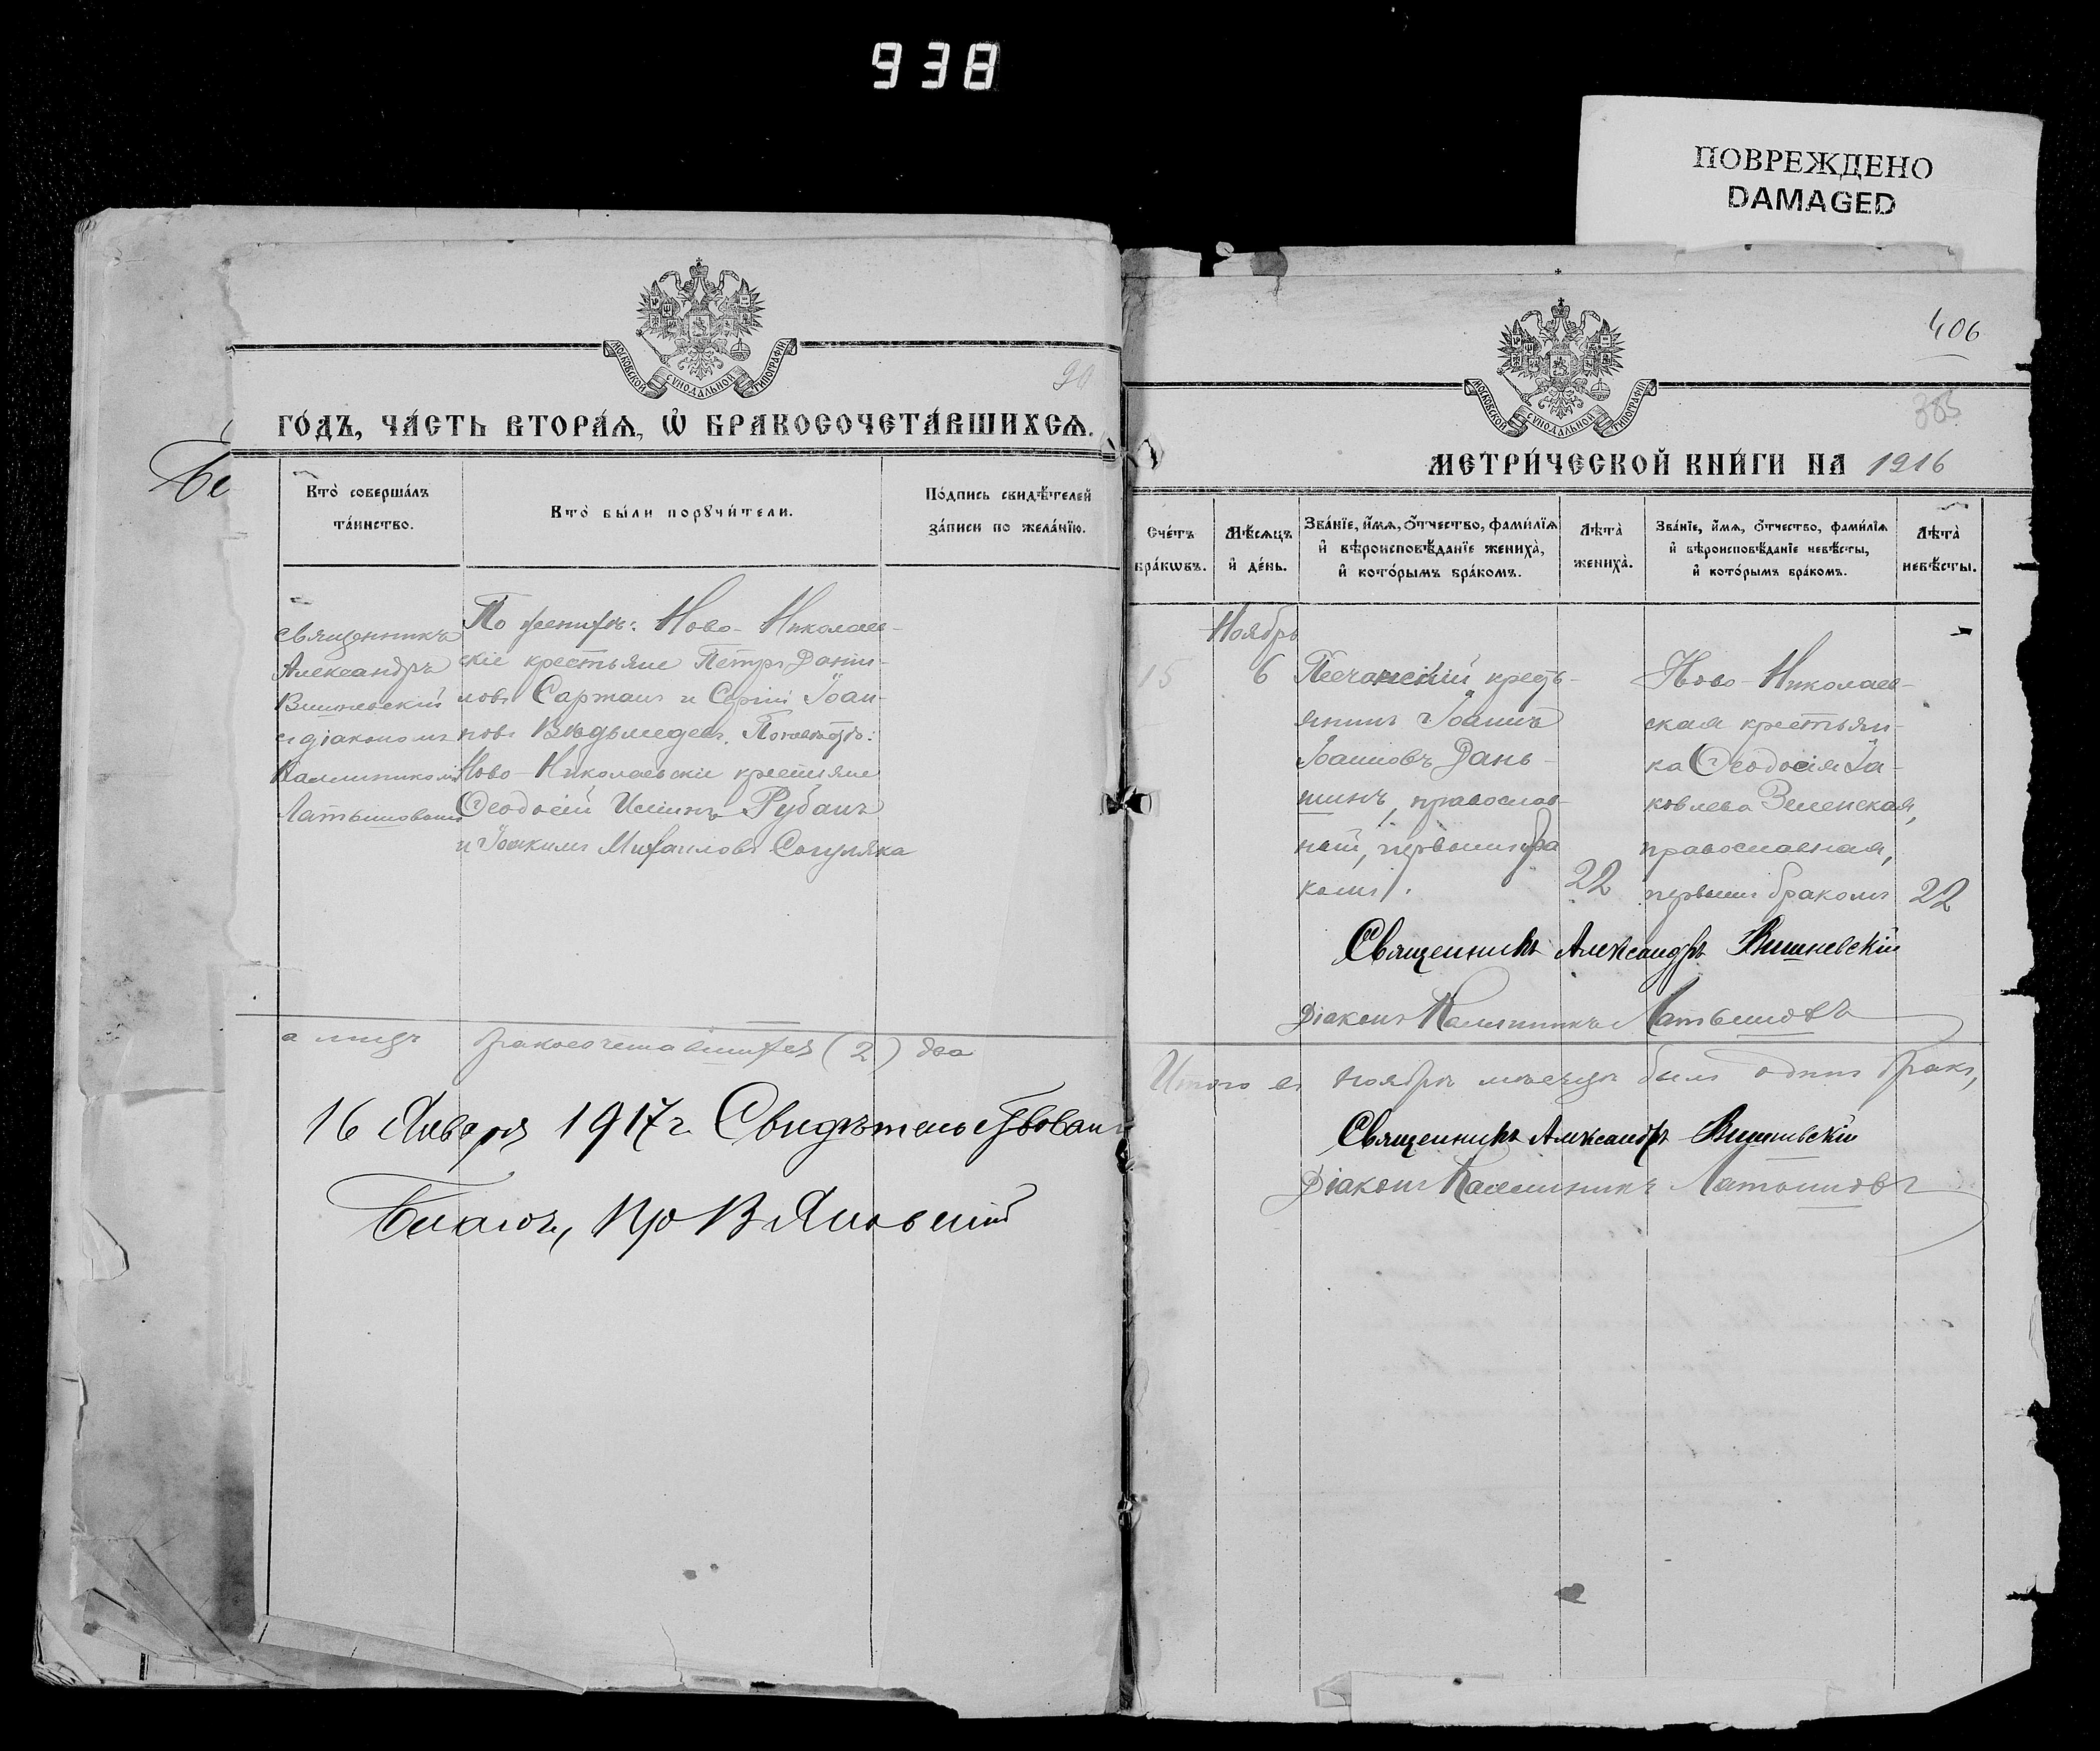 938
ПОВРЕЖДЕНО
DAMAGED
МОСКОВСКОЙ СѴНОДАЛЬНОЙ ТИПОГРАФІИ
ГО́ДЪ, ЧА́СТЬ ВТОРА́Я, Ѡ҆ БРАКОСОЧЕТА́ВШИХСЯ.
Кто̀ соверша́лъ
та́инство.
Кто̀ бы́ли порꙋчи́тели.
По́дпись свидѣ́телей
за́писи по жела́нїю.
Священникъ
Александръ
Вишневскій
с діакономъ
Каллиникомъ
Латышовымъ
По женихѣ: Ново-Николаев-
скіе крестьяне Петръ Дании-
ловъ Сартанъ и Сергій Іоан-
новъ Ведьмедев. По невѣстѣ:
Ново-Николаевскіе крестьяне
Ѳеодосій Рубанъ
и Іоакимъ Михаиловъ
а лицъ бракосочетавшихся (2) два
16 Января 1917 г. Свидѣтельствовалъ
Благоч, Пр В Яновский
406
385
МОСКОВСКОЙ СѴНОДАЛЬНОЙ ТИПОГРАФІИ
МЕТРИ́ЧЕСКОЙ КНИ́ГИ НА 1916
Сче́тъ
бра́кѡвъ.
Мѣ́сяцъ
и҆ де́нь.
Зва́нїе, и҆́мя, ѻ҆́тчество, фами́лїя
и҆ вѣроисповѣ́данїе жениха̀,
и҆ кото́рымъ бра́комъ.
Лѣта̀
жениха̀.
Зва́нїе, и҆́мя, ѻ҆́тчество, фами́лїя
и҆ вѣроисповѣ́данїе невѣ́сты,
и҆ кото́рымъ бра́комъ.
Лѣта̀
невѣ́сты.
Ноябрь
15
6
Песчанскій кресть-
янинъ Іоаннъ
Іоанновъ Дань-
шинъ, православ-
ный, первымъ бра
комъ.
22
Ново-Николаев-
ская крестьян-
ка Ѳеодосія Іа-
ковлева Зеленская,
православная,
первымъ бракомъ
22
Священникъ Александръ Вишневскій
Діаконъ Каллиникъ Латышовъ
Итого въ ноябрѣ мѣсяцѣ былъ одинъ бракъ,
Священникъ Александръ Вишневскій
Діаконъ Каллиникъ Латышовъ